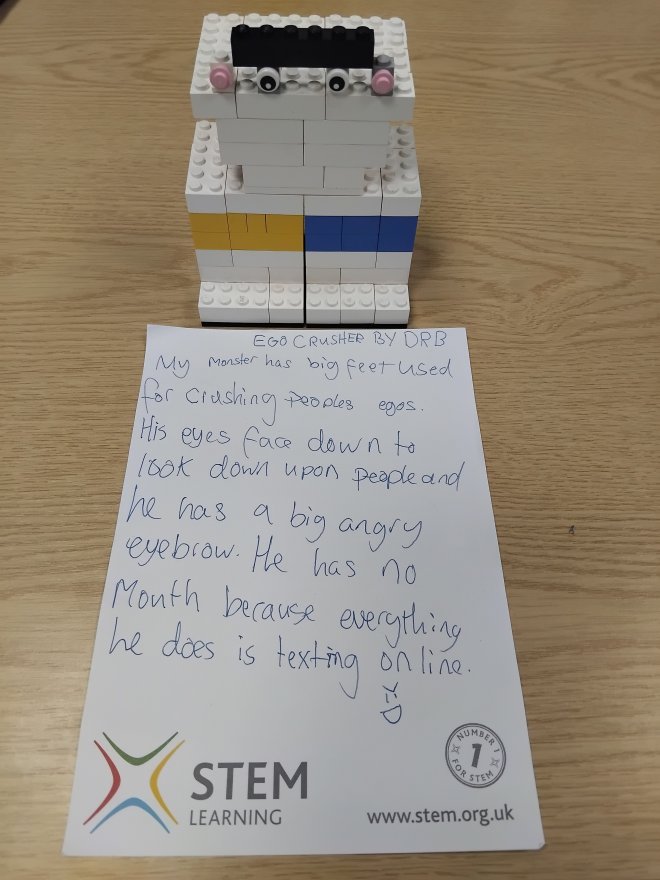 EGO CRUSHER BY DRB
My Monster has big feet used
for crushing peoples egos.
His eyes face down to
look down upon people and
he has a big angry
eyebrow. He has no
Mouth because everything
he does is texting online.
>:D
STEM
LEARNING
NUMBER 1
1
FOR STEM
www.stem.org.uk